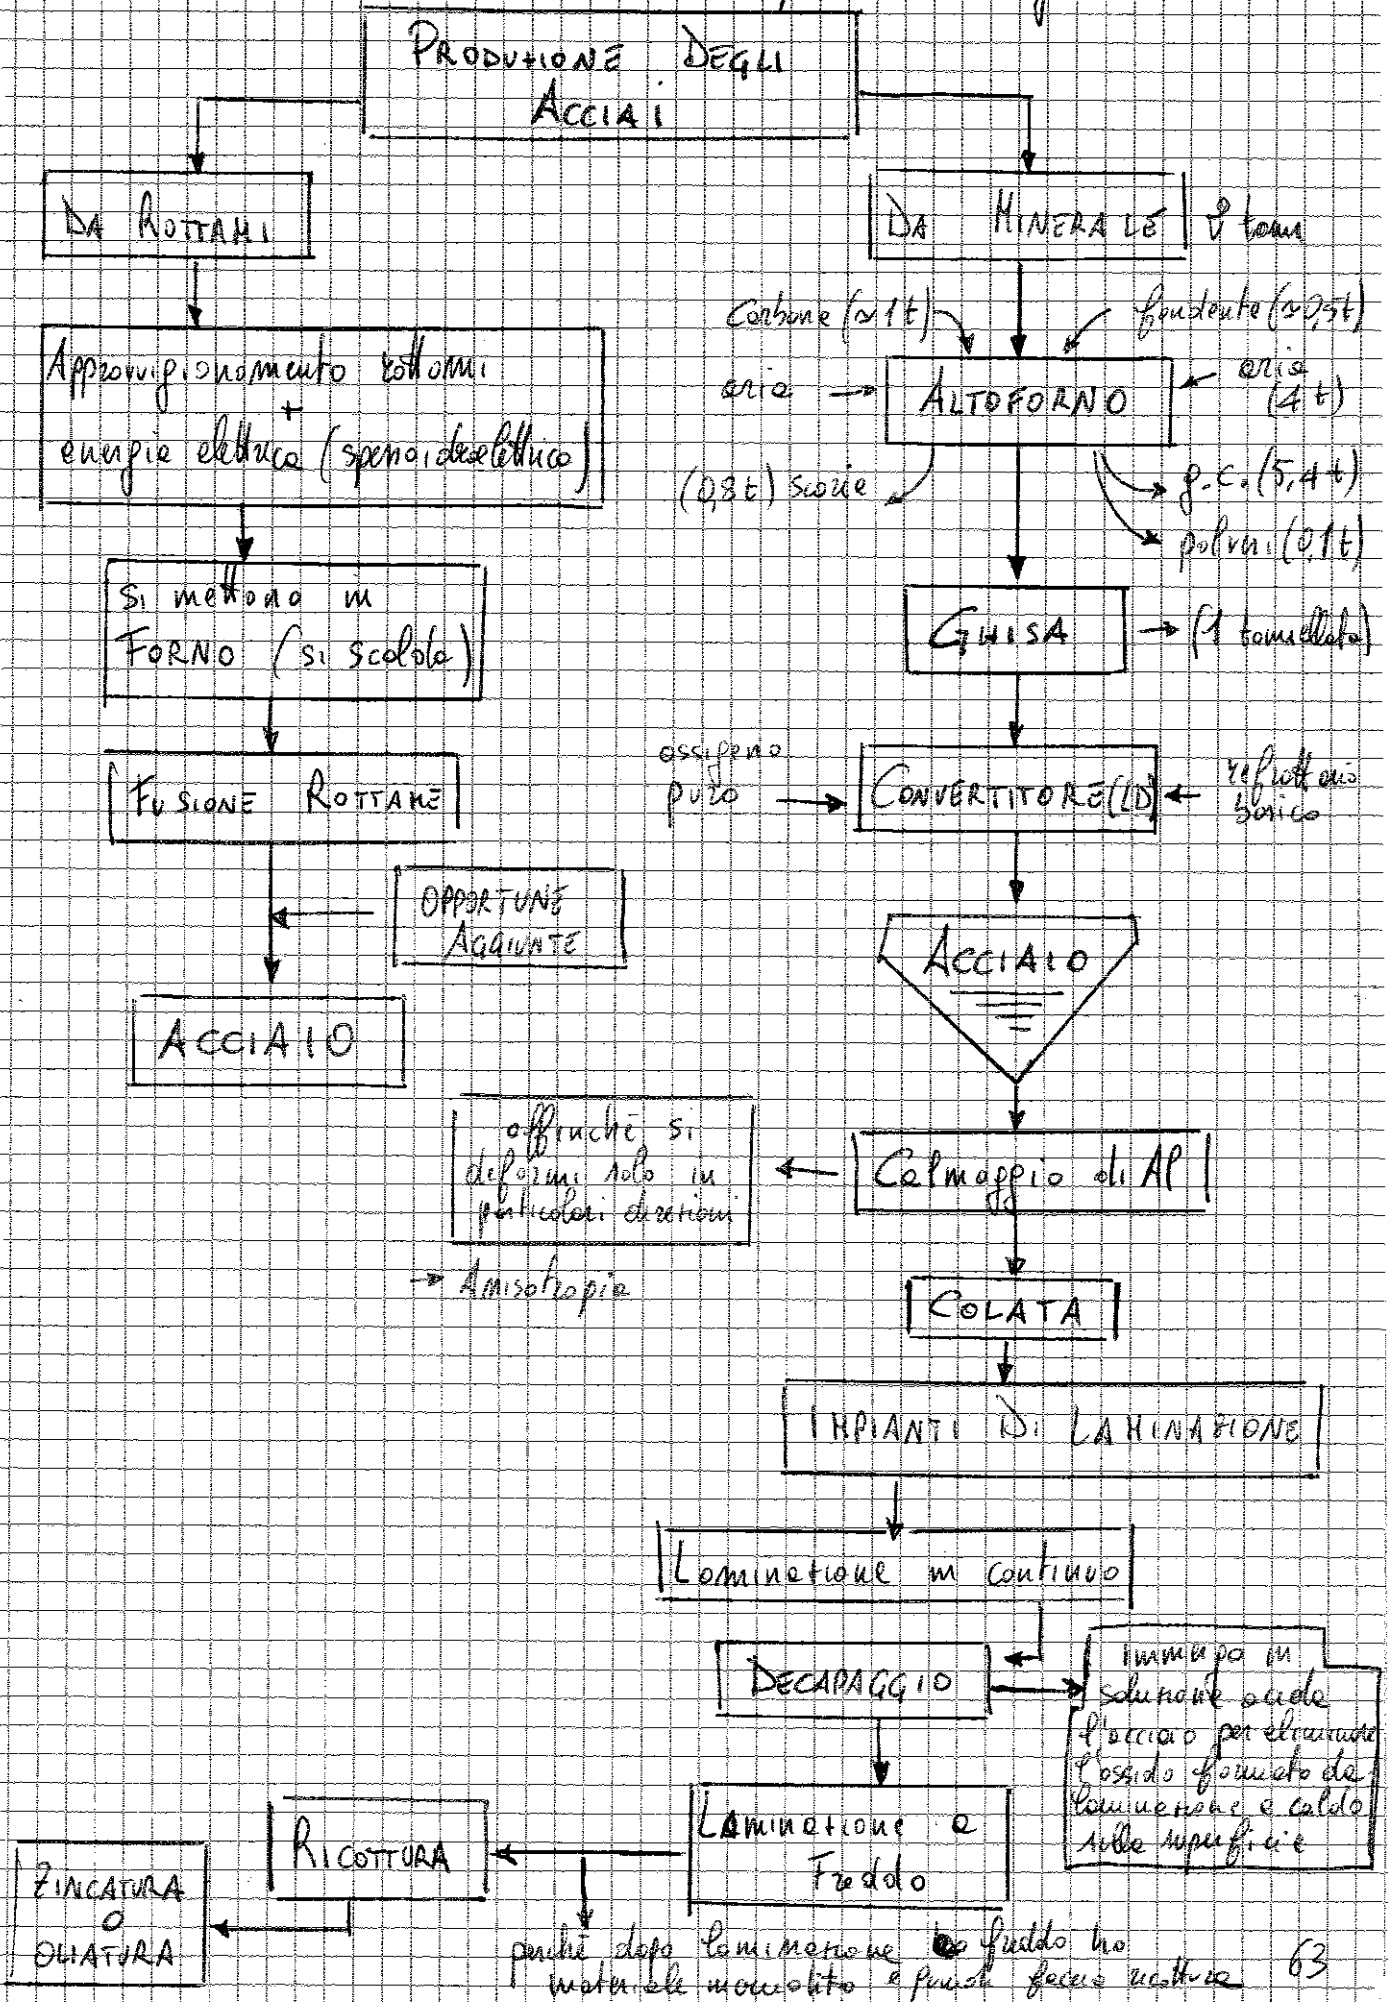 PRODUZIONE DEGLI
ACCIAI
DA ROTTAMI
DA MINERALE
Approvvigionamento rottami
+
energia elettrica (spesso idroelettrica)
si mettono in
FORNO (si scalda)
FUSIONE ROTTAME
OPPORTUNE
AGGIUNTE
ACCIAIO
Carbone (~1t)
fondente (~0,5t)
aria
ALTOFORNO
aria
(4 t)
(0,8t) scorie
g.c. (5,4 t)
polveri (0,1t)
GHISA
(1 tonnellata)
ossigeno
puro
CONVERTITORE (LD)
refrattario
basico
ACCIAIO
Calmaggio di Al
affinché si
deformi solo in
particolari direzioni
→ Anisotropia
COLATA
IMPIANTI DI LAMINAZIONE
Laminazione in continuo
DECAPAGGIO
immergo in
soluzione acida
l'acciaio per eliminare
l'ossido formato da
laminazione a caldo
sulla superficie
Laminazione a
Freddo
RICOTTURA
ZINCATURA
O
OLIATURA
perché dopo laminazione a freddo ho
materiale e quindi faccio ricottura
63